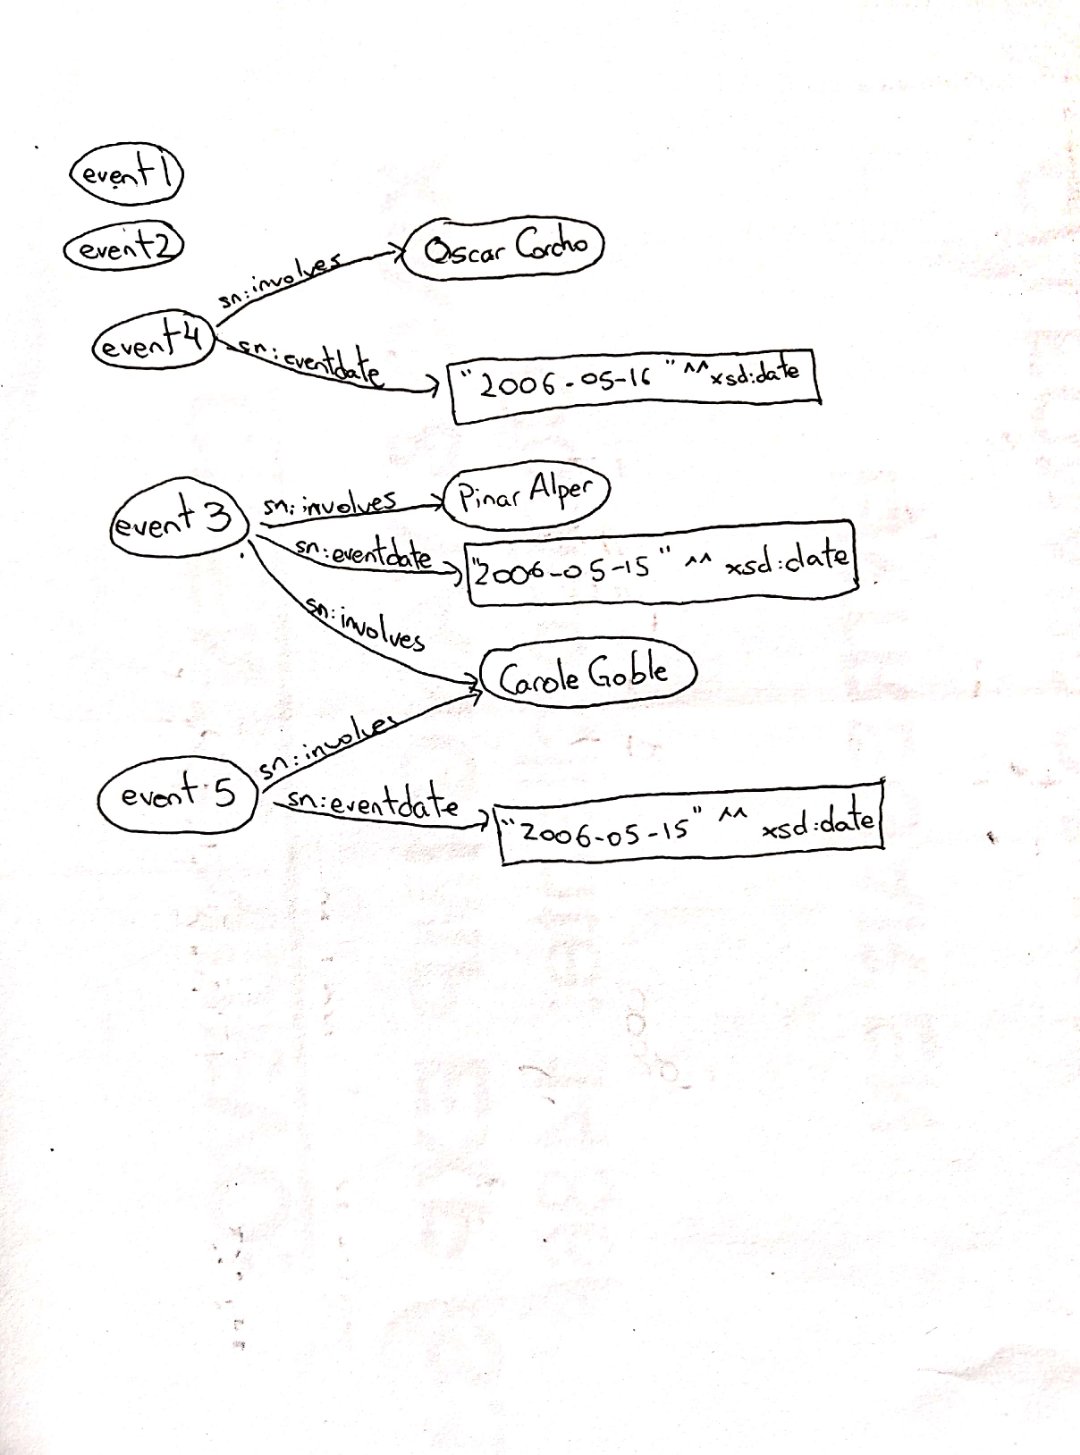 event 1
event2
Oscar Corcho
sn:involves
event4
sn:eventdate
"2006-05-16"^^xsd:date
event 3
sn:involves
Pinar Alper
sn:eventdate
"2006-05-15"^^ xsd:date
sn:involves
Carole Goble
sn:involves
event 5
sn:eventdate
"2006-05-15"^^ xsd:date